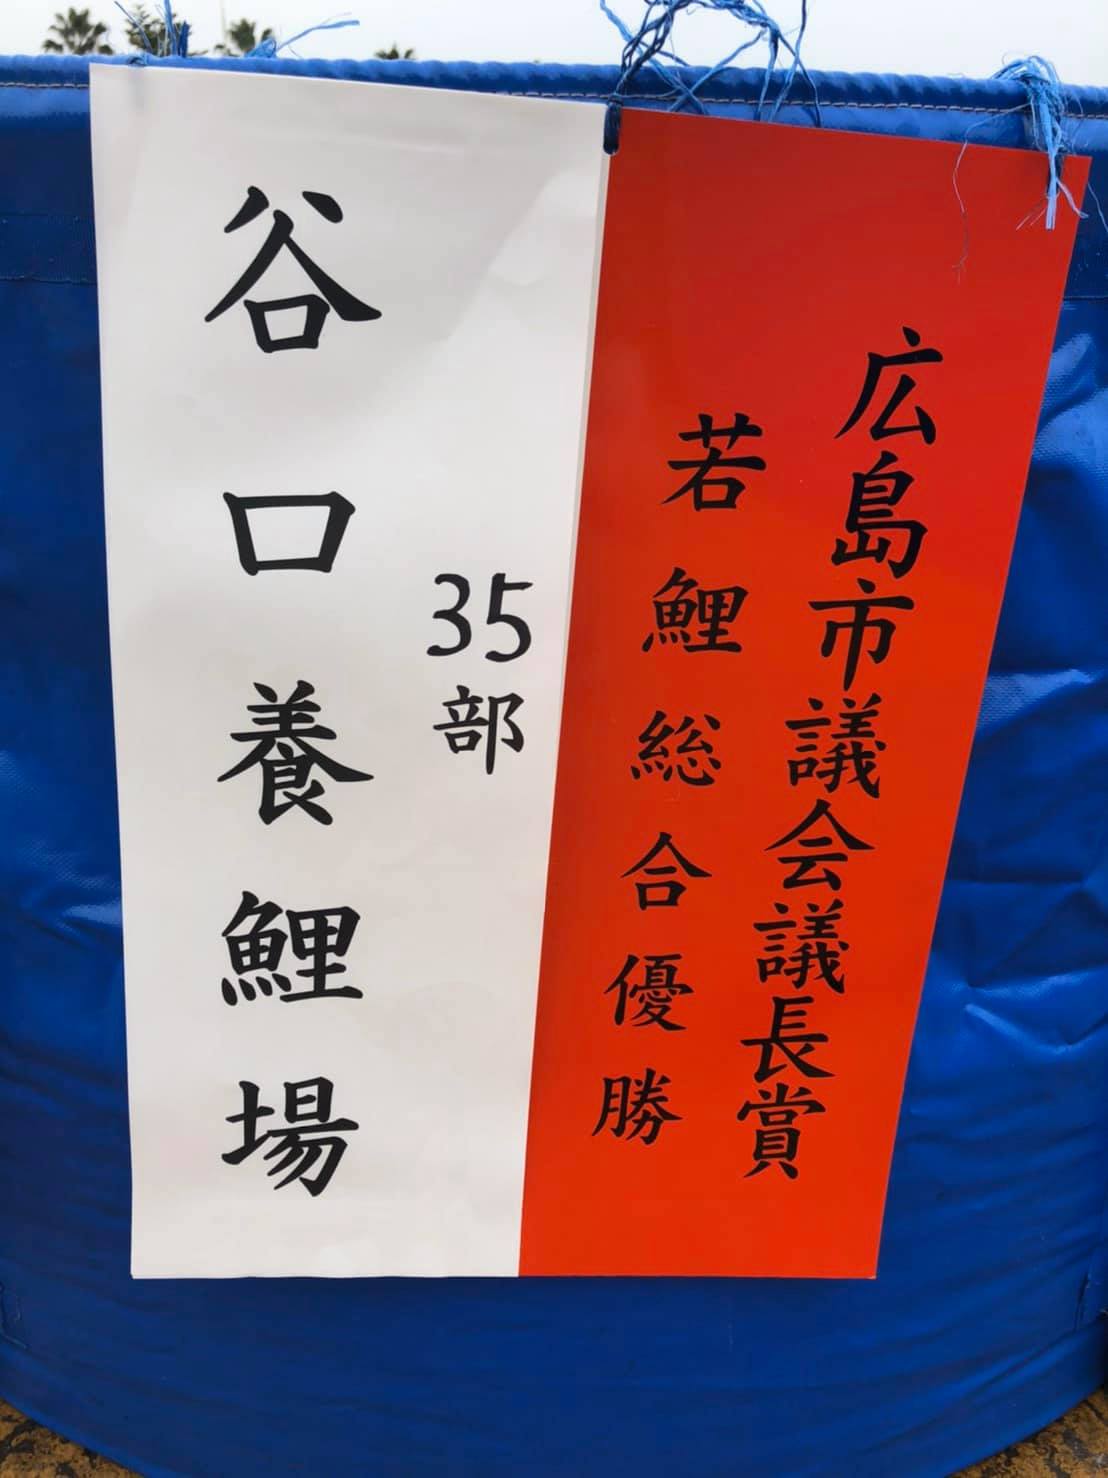 広島市議会議長賞
若鯉総合優勝
35部
谷口養鯉場